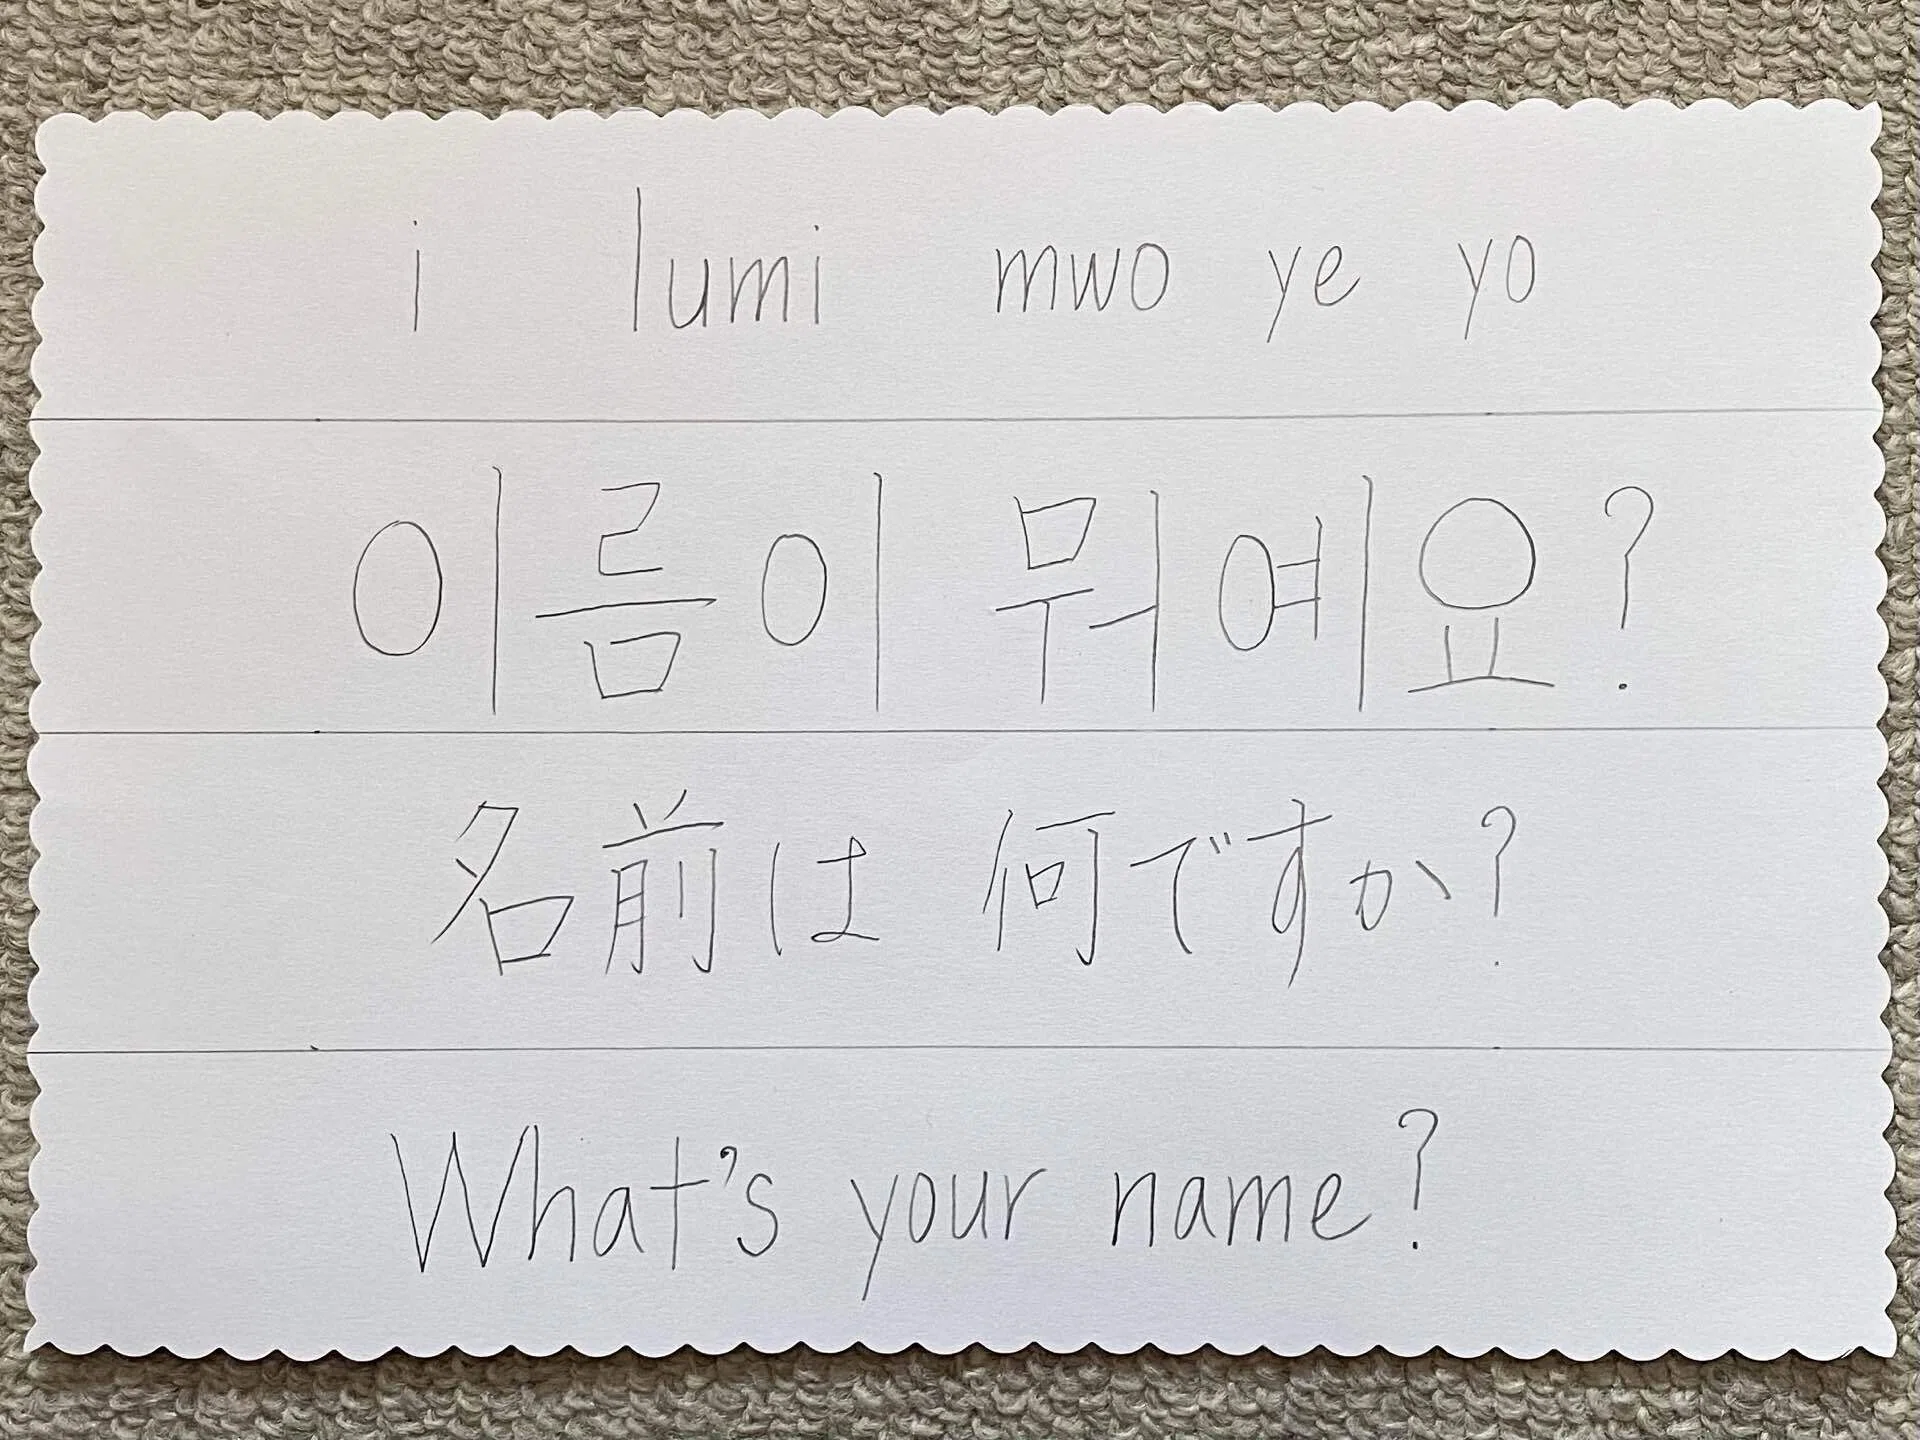 i lumi mwo ye yo
이름이 뭐예요?
名前は 何ですか?
What's your name?